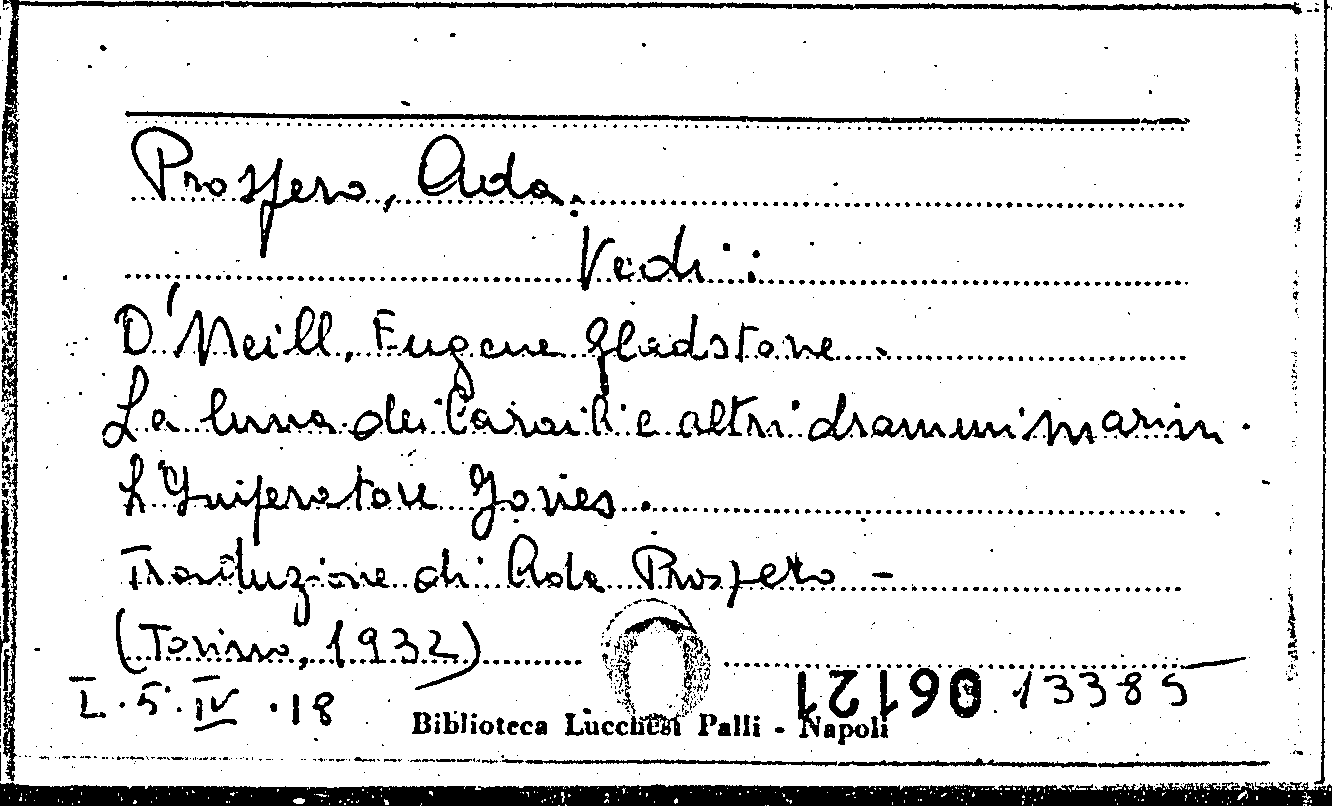 Prospero, Ada.
Vedi:
O'Neill, Eugene Gladstone.
La luna dei Caraibi e altri drammi marini.
L'Imperatore Jones.
Traduzione di Ada Prospero -
(Torino, 1932)
I.5.IV.18
061121 13385
Biblioteca Lucchesi Palli - Napoli